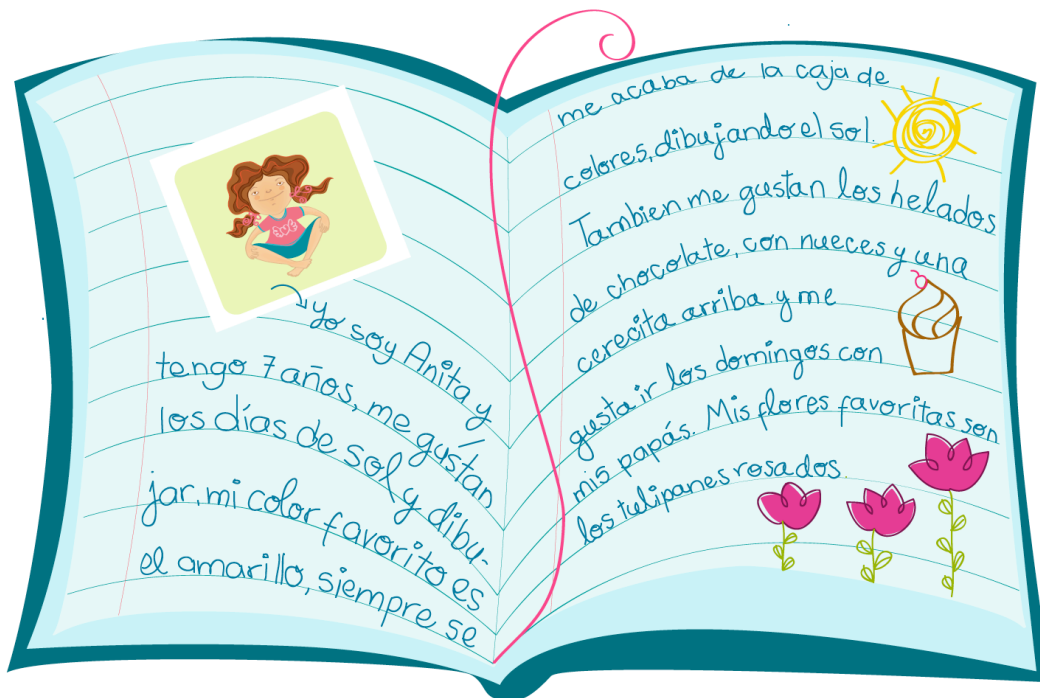 yo soy Anita y
tengo 7 años, me gustán
los días de sol y dibu-
jar, mi color favorito es
el amarillo, siempre se
me acaba de la caja de
colores, dibujando el sol.
Tambien me gustan los helados
de chocolate, con nueces y una
cerecita arriba. y me
gusta ir los domingos con
mis papás. Mis flores favoritas son
los tulipanes rosados.